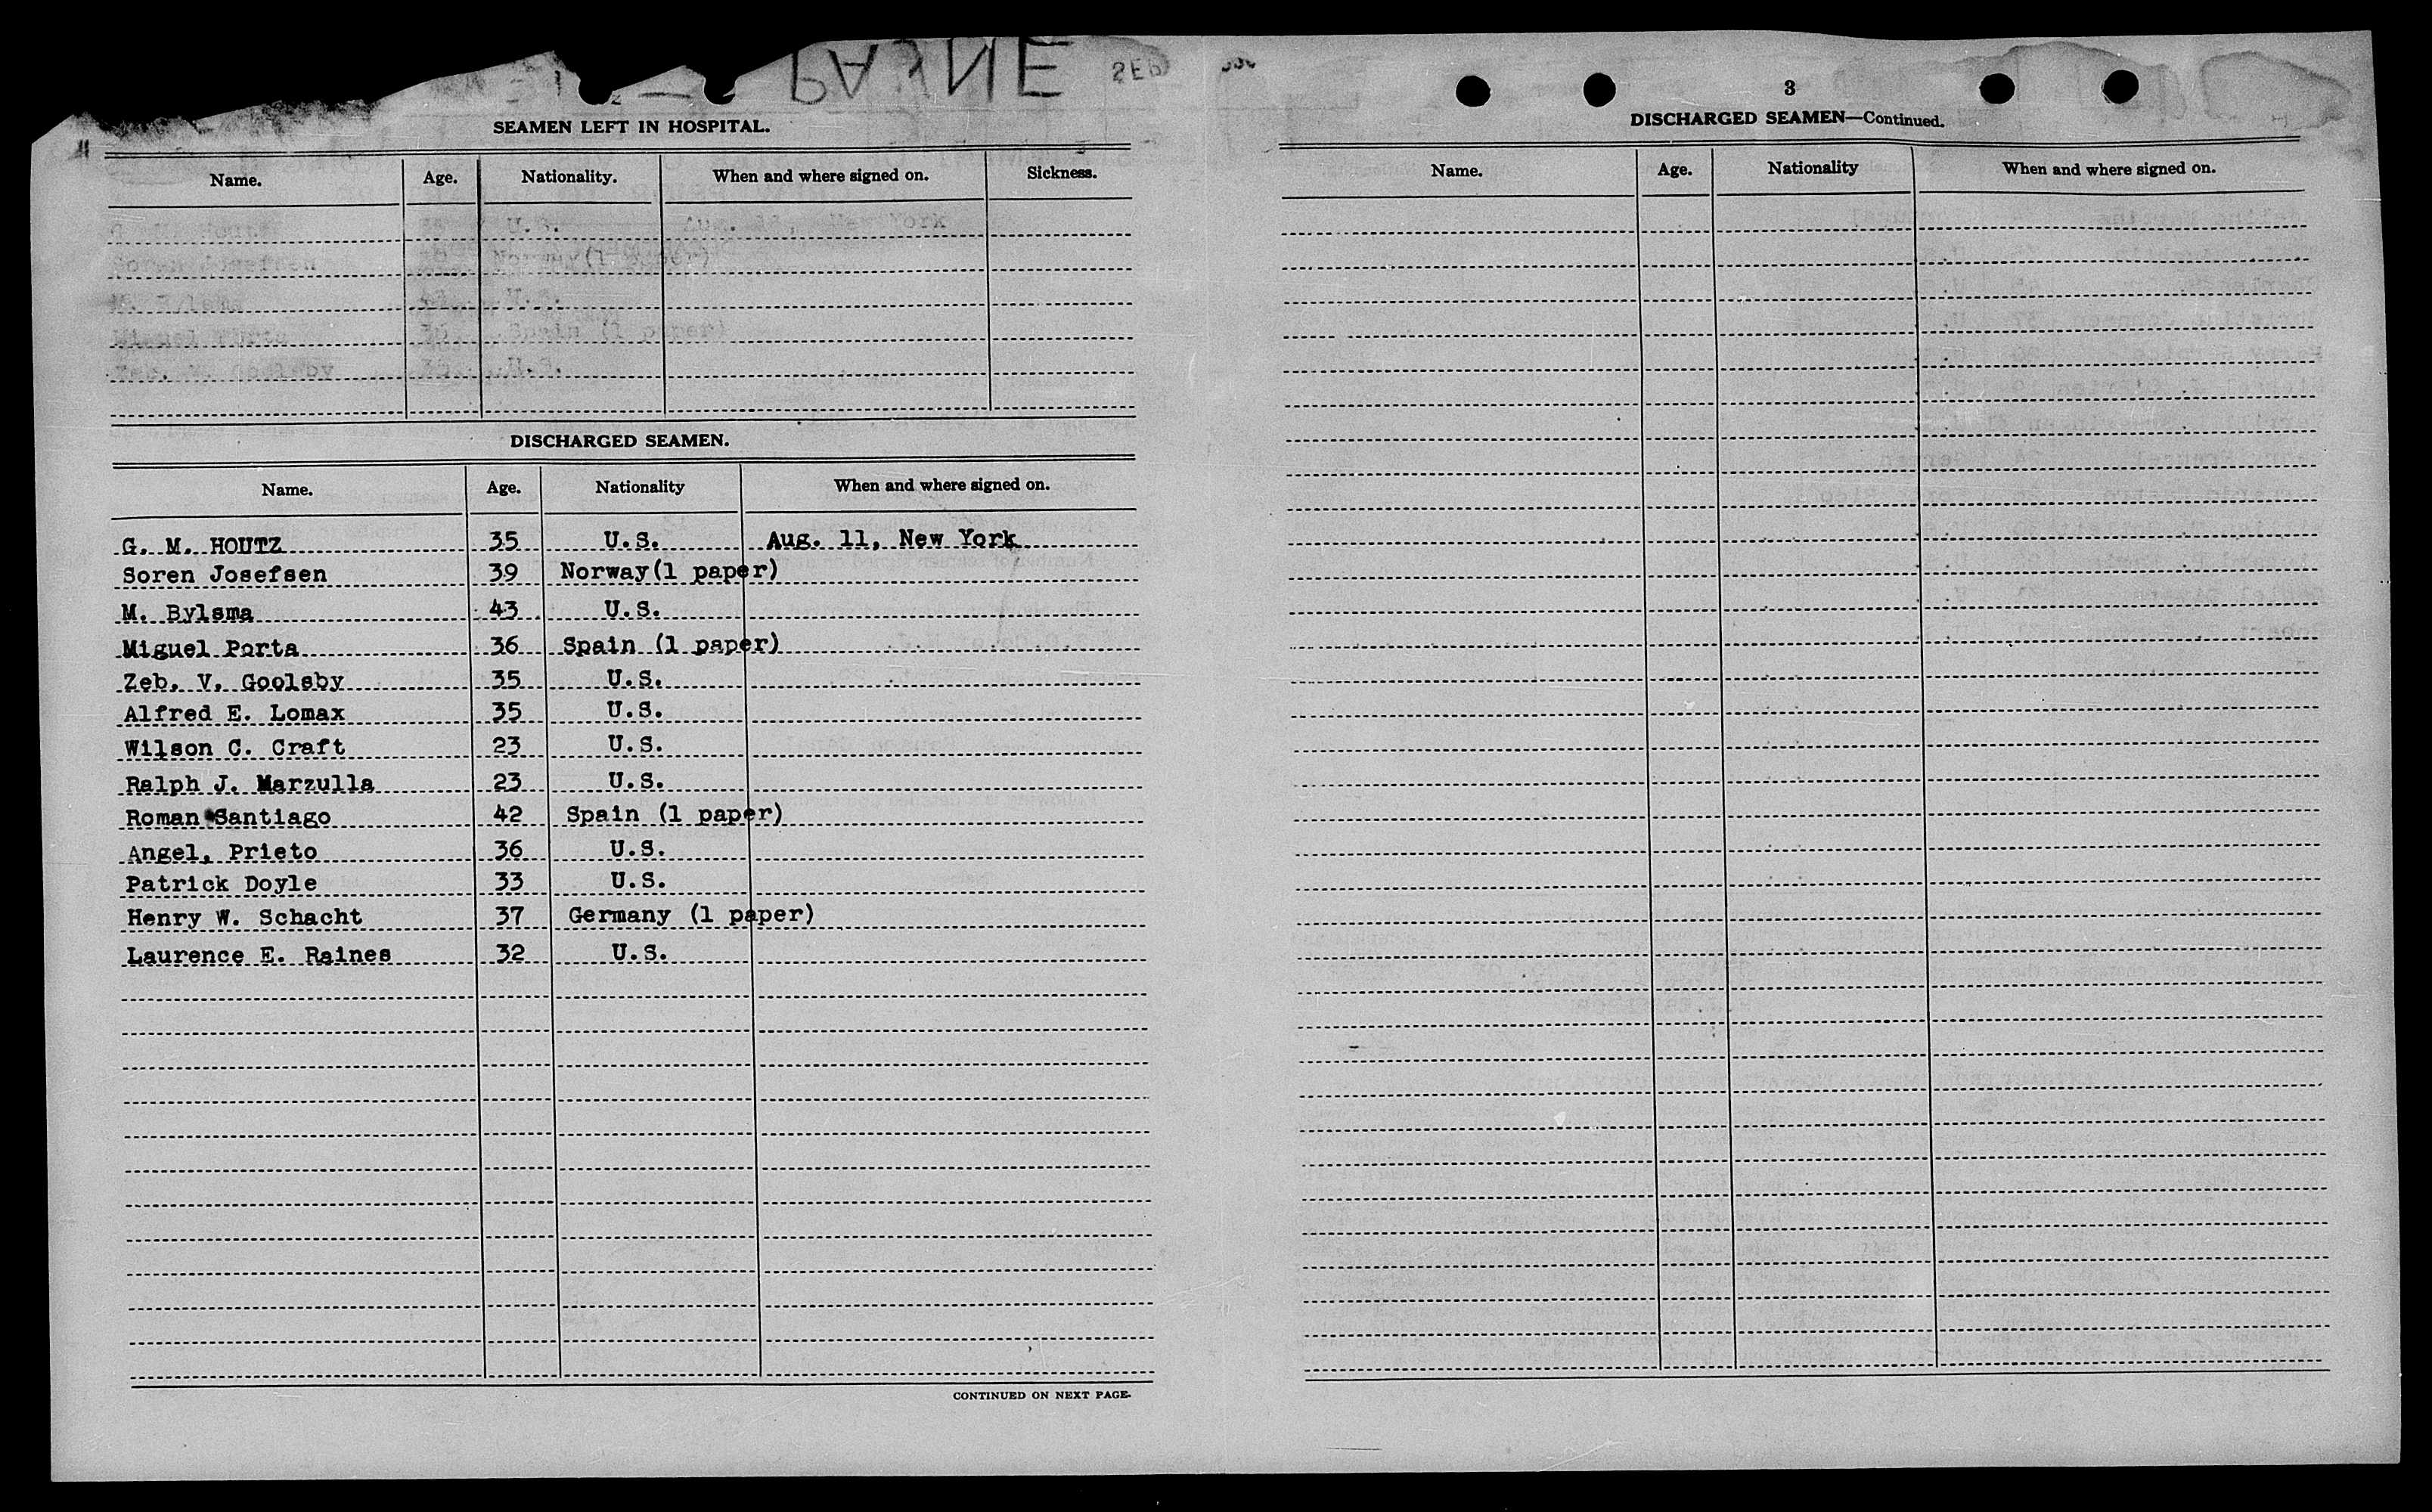 PAYNE
SEP
2
SEAMEN LEFT IN HOSPITAL.
Name. Age. Nationality. When and where signed on. Sickness.
DISCHARGED SEAMEN.
Name. Age. Nationality When and where signed on.
G. M. HOUTZ 35 U.S. Aug. 11, New York
Soren Josefsen 39 Norway(1 paper)
M. Bylsma 43 U.S.
Miguel Porta 36 Spain (1 paper)
Zeb. V. Goolsby 35 U.S.
Alfred E. Lomax 35 U.S.
Wilson C. Craft 23 U.S.
Ralph J. Marzulla 23 U.S.
Roman Santiago 42 Spain (1 paper)
Angel, Prieto 36 U.S.
Patrick Doyle 33 U.S.
Henry W. Schacht 37 Germany (1 paper)
Laurence E. Raines 32 U.S.
CONTINUED ON NEXT PAGE.
3
DISCHARGED SEAMEN—Continued.
Name. Age. Nationality When and where signed on.